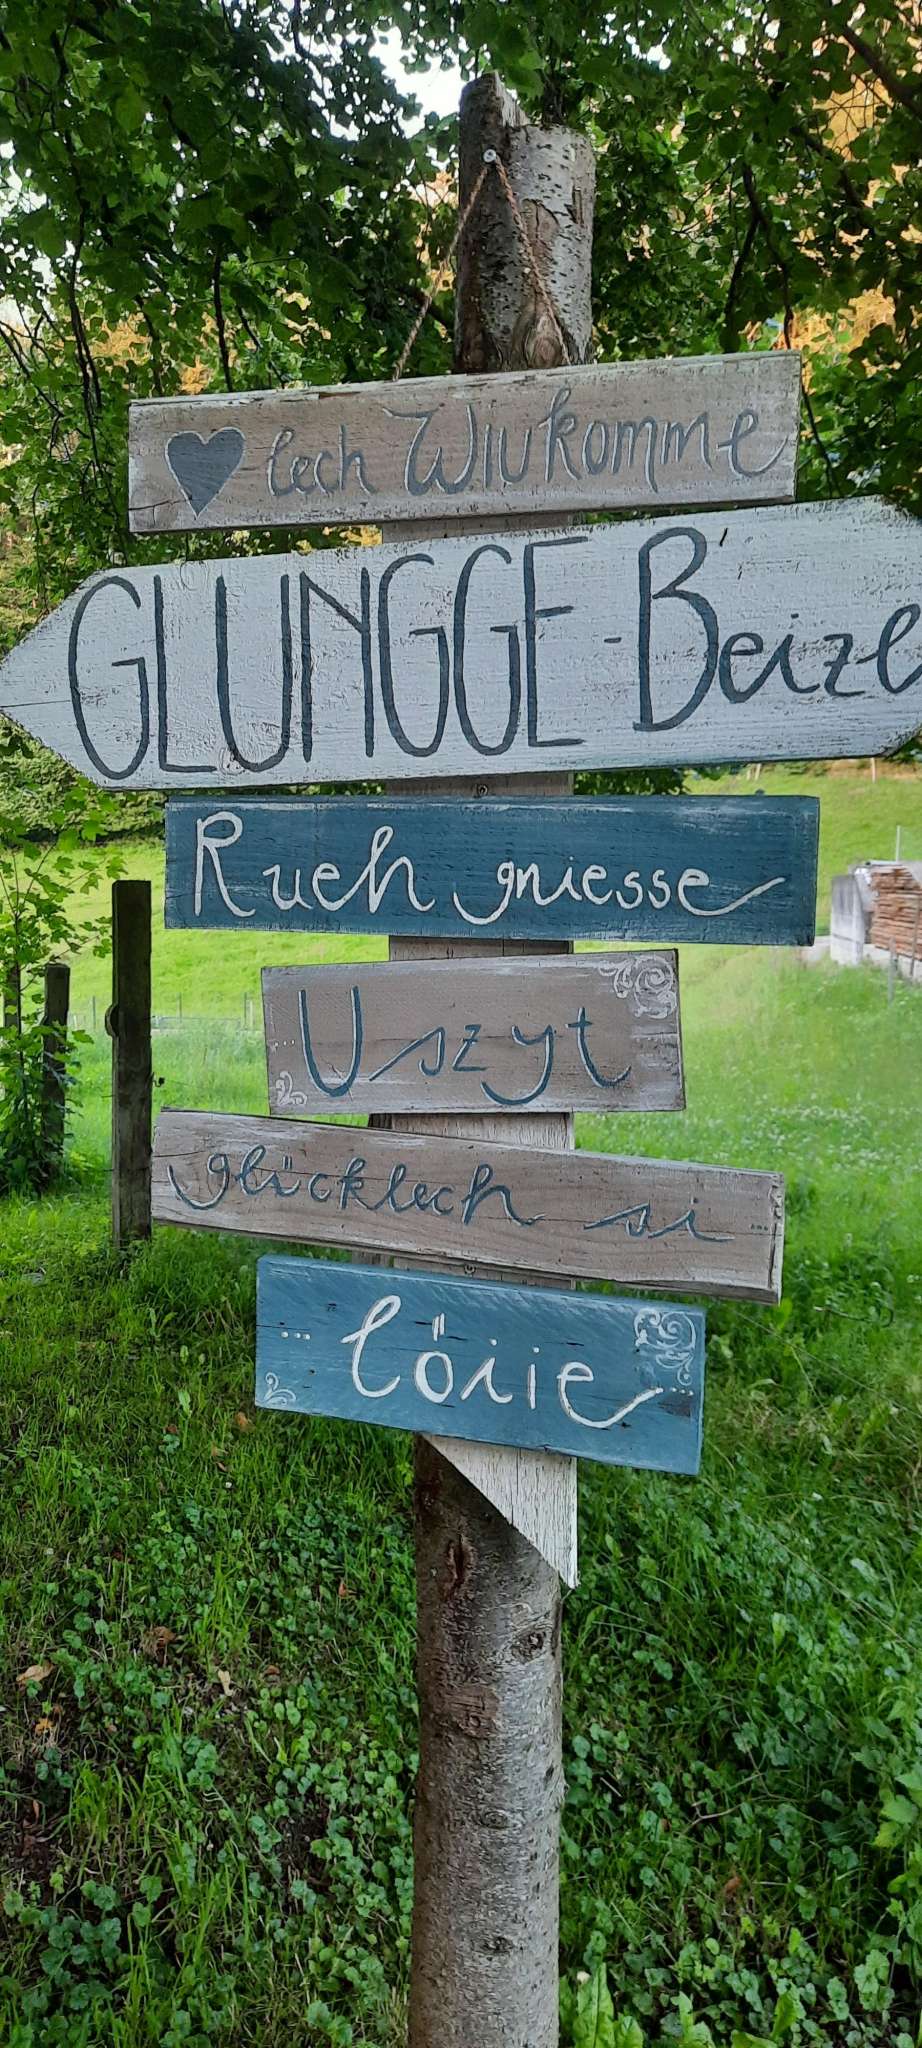 ♥lech Wiukomme
GLUNGGE-Beizl
Rueh gniesse
... Uszyt
glücklech si ...
... löiie ...